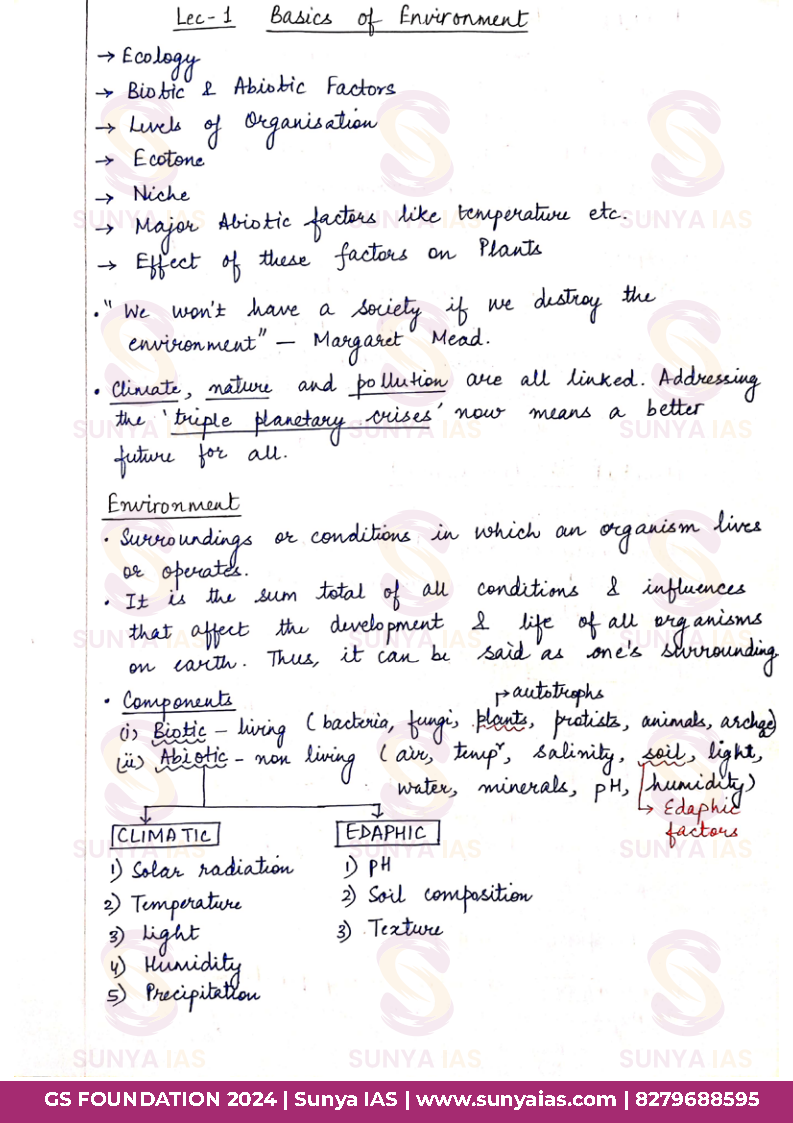 Lec-1 Basics of Environment
→ Ecology
→ Biotic & Abiotic Factors
→ Levels of Organisation
→ Ecotone
→ Niche
→ Major Abiotic factors like temperature etc.
→ Effect of these factors on Plants
• "We won't have a society if we destroy the
environment" — Margaret Mead.
• Climate, nature and pollution are all linked. Addressing
the 'triple planetary crises' now means a better
future for all.
Environment
• Surroundings or conditions in which an organism lives
or operates.
• It is the sum total of all conditions & influences
that affect the development & life of all organisms
on earth. Thus, it can be said as one's surrounding
• Components
↱ autotrophs
(i) Biotic – living (bacteria, fungi, plants, protists, animals, archae)
(ii) Abiotic – non living (air, tempr, salinity, soil, light,
water, minerals, pH, humidity)
↳ Edaphic
factors
CLIMATIC EDAPHIC
1) Solar radiation 1) pH
2) Temperature 2) Soil composition
3) Light 3) Texture
4) Humidity
5) Precipitation
SUNYA IAS SUNYA IAS SUNYA IAS
GS FOUNDATION 2024 | Sunya IAS | www.sunyaias.com | 8279688595